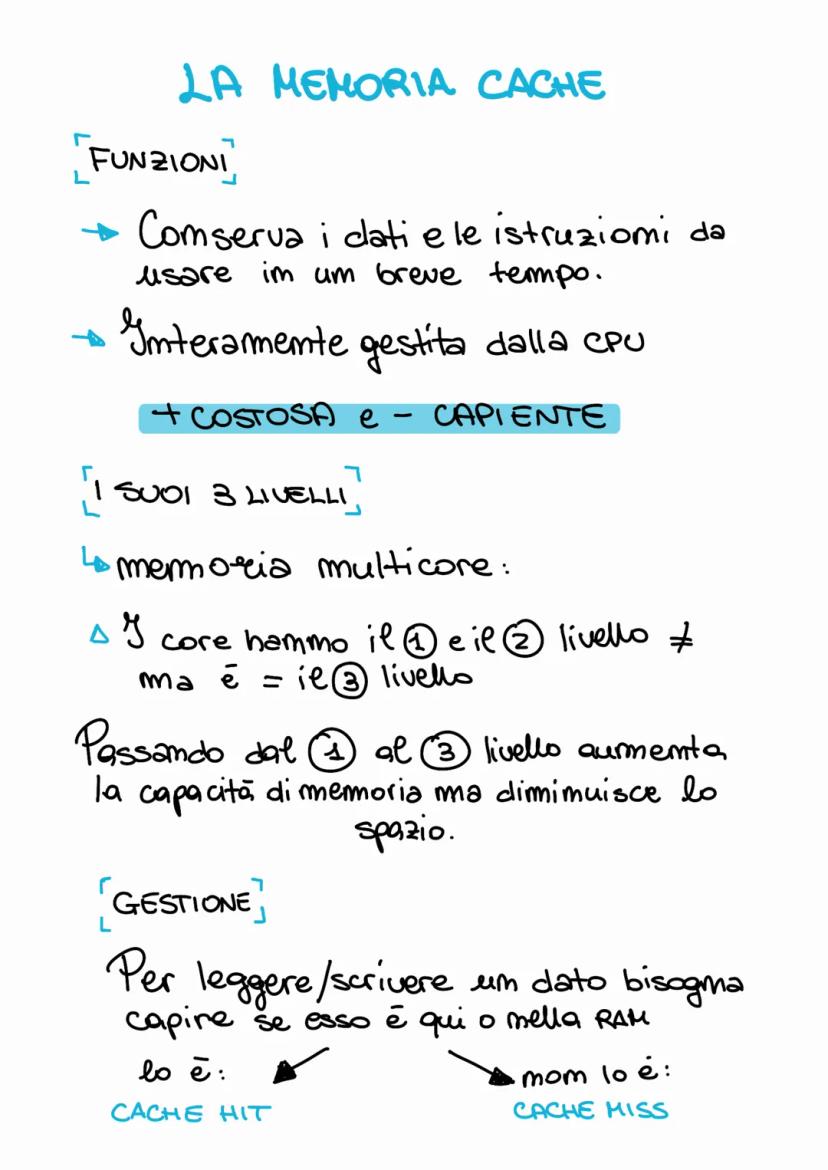 LA MEMORIA CACHE
FUNZIONI
→ Conserva i dati e le istruzioni da
usare in un breve tempo.
→ Interamente gestita dalla CPU
+ COSTOSA e - CAPIENTE
I SUOI 3 LIVELLI
↳ memoria multicore:
△ I core hanno il ① e il ② livello ≠
ma è = il ③ livello
Passando dal ① al ③ livello aumenta
la capacità di memoria ma diminuisce lo
spazio.
GESTIONE
Per leggere/scrivere un dato bisogna
capire se esso è qui o nella RAM
lo è: non lo è:
CACHE HIT CACHE MISS